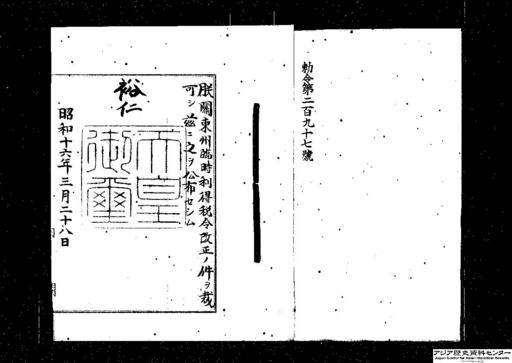 勅令第二百九十七號
朕關東州臨時利得税令改正ノ件ヲ裁
可シ茲ニ之ヲ公布セシム
裕仁
天皇
御璽
昭和十六年三月二十八日
アジア歴史資料センター
Japan Center for Asian Historical Records